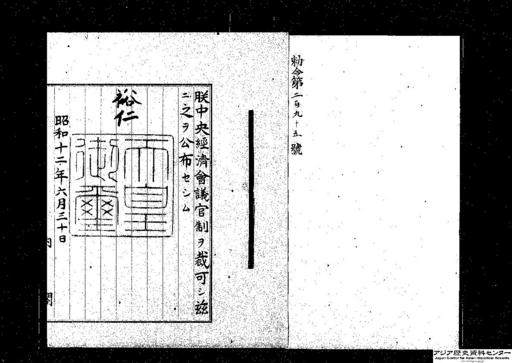 勅令第二百九十五號
朕中央經濟會議官制ヲ裁可シ茲
ニ之ヲ公布セシム
裕仁
天皇御璽
昭和十二年六月三十日
内閣
アジア歴史資料センター
Japan Center for Asian Historical Records